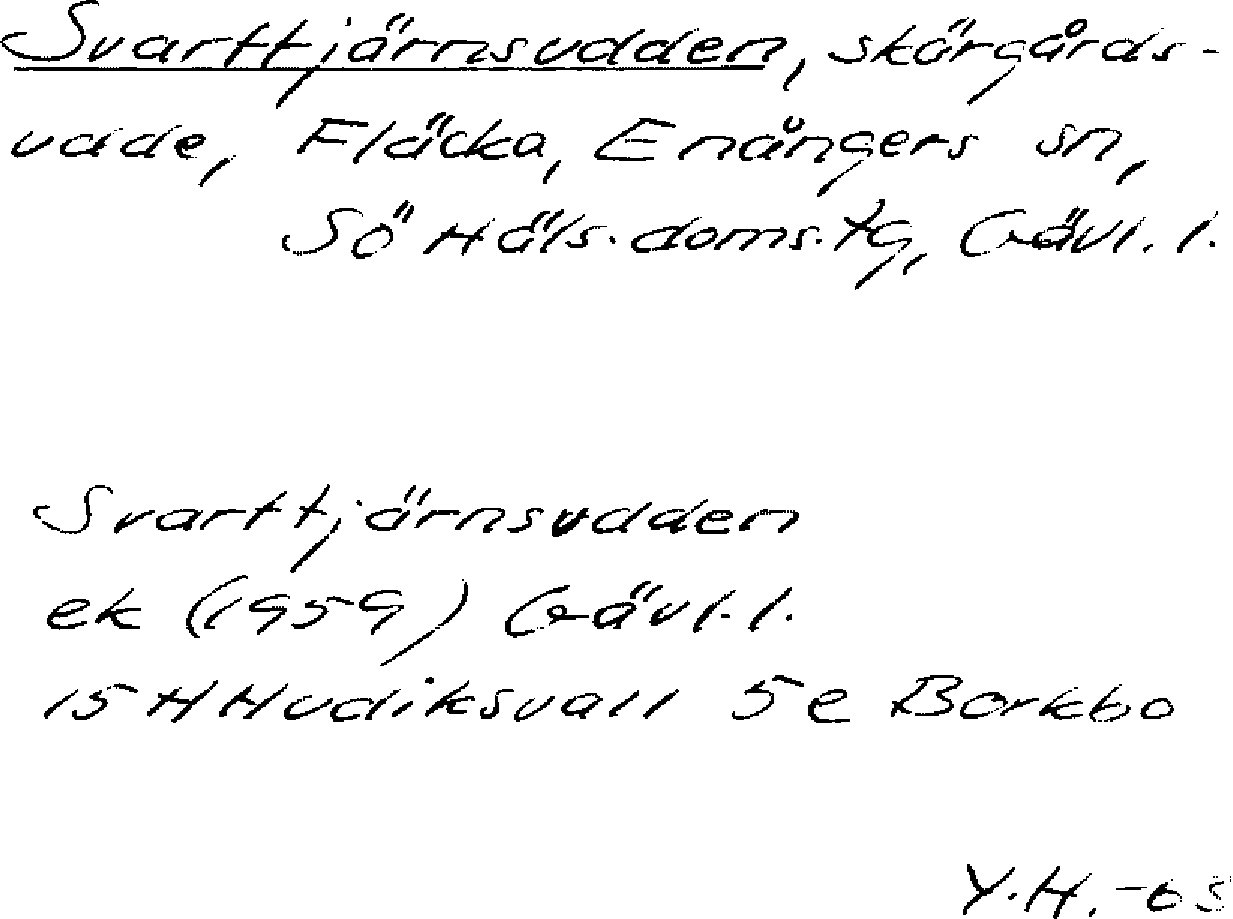 Svarttjärnsudden, skärgårds-
udde, Fläcka, Enångers sn,
Sö Häls. doms. tg, Gävl. l.
Svarttjärnsudden
ek (1959) Gävl. l.
15 H Hudiksvall 5e Borkbo
Y.H.-65